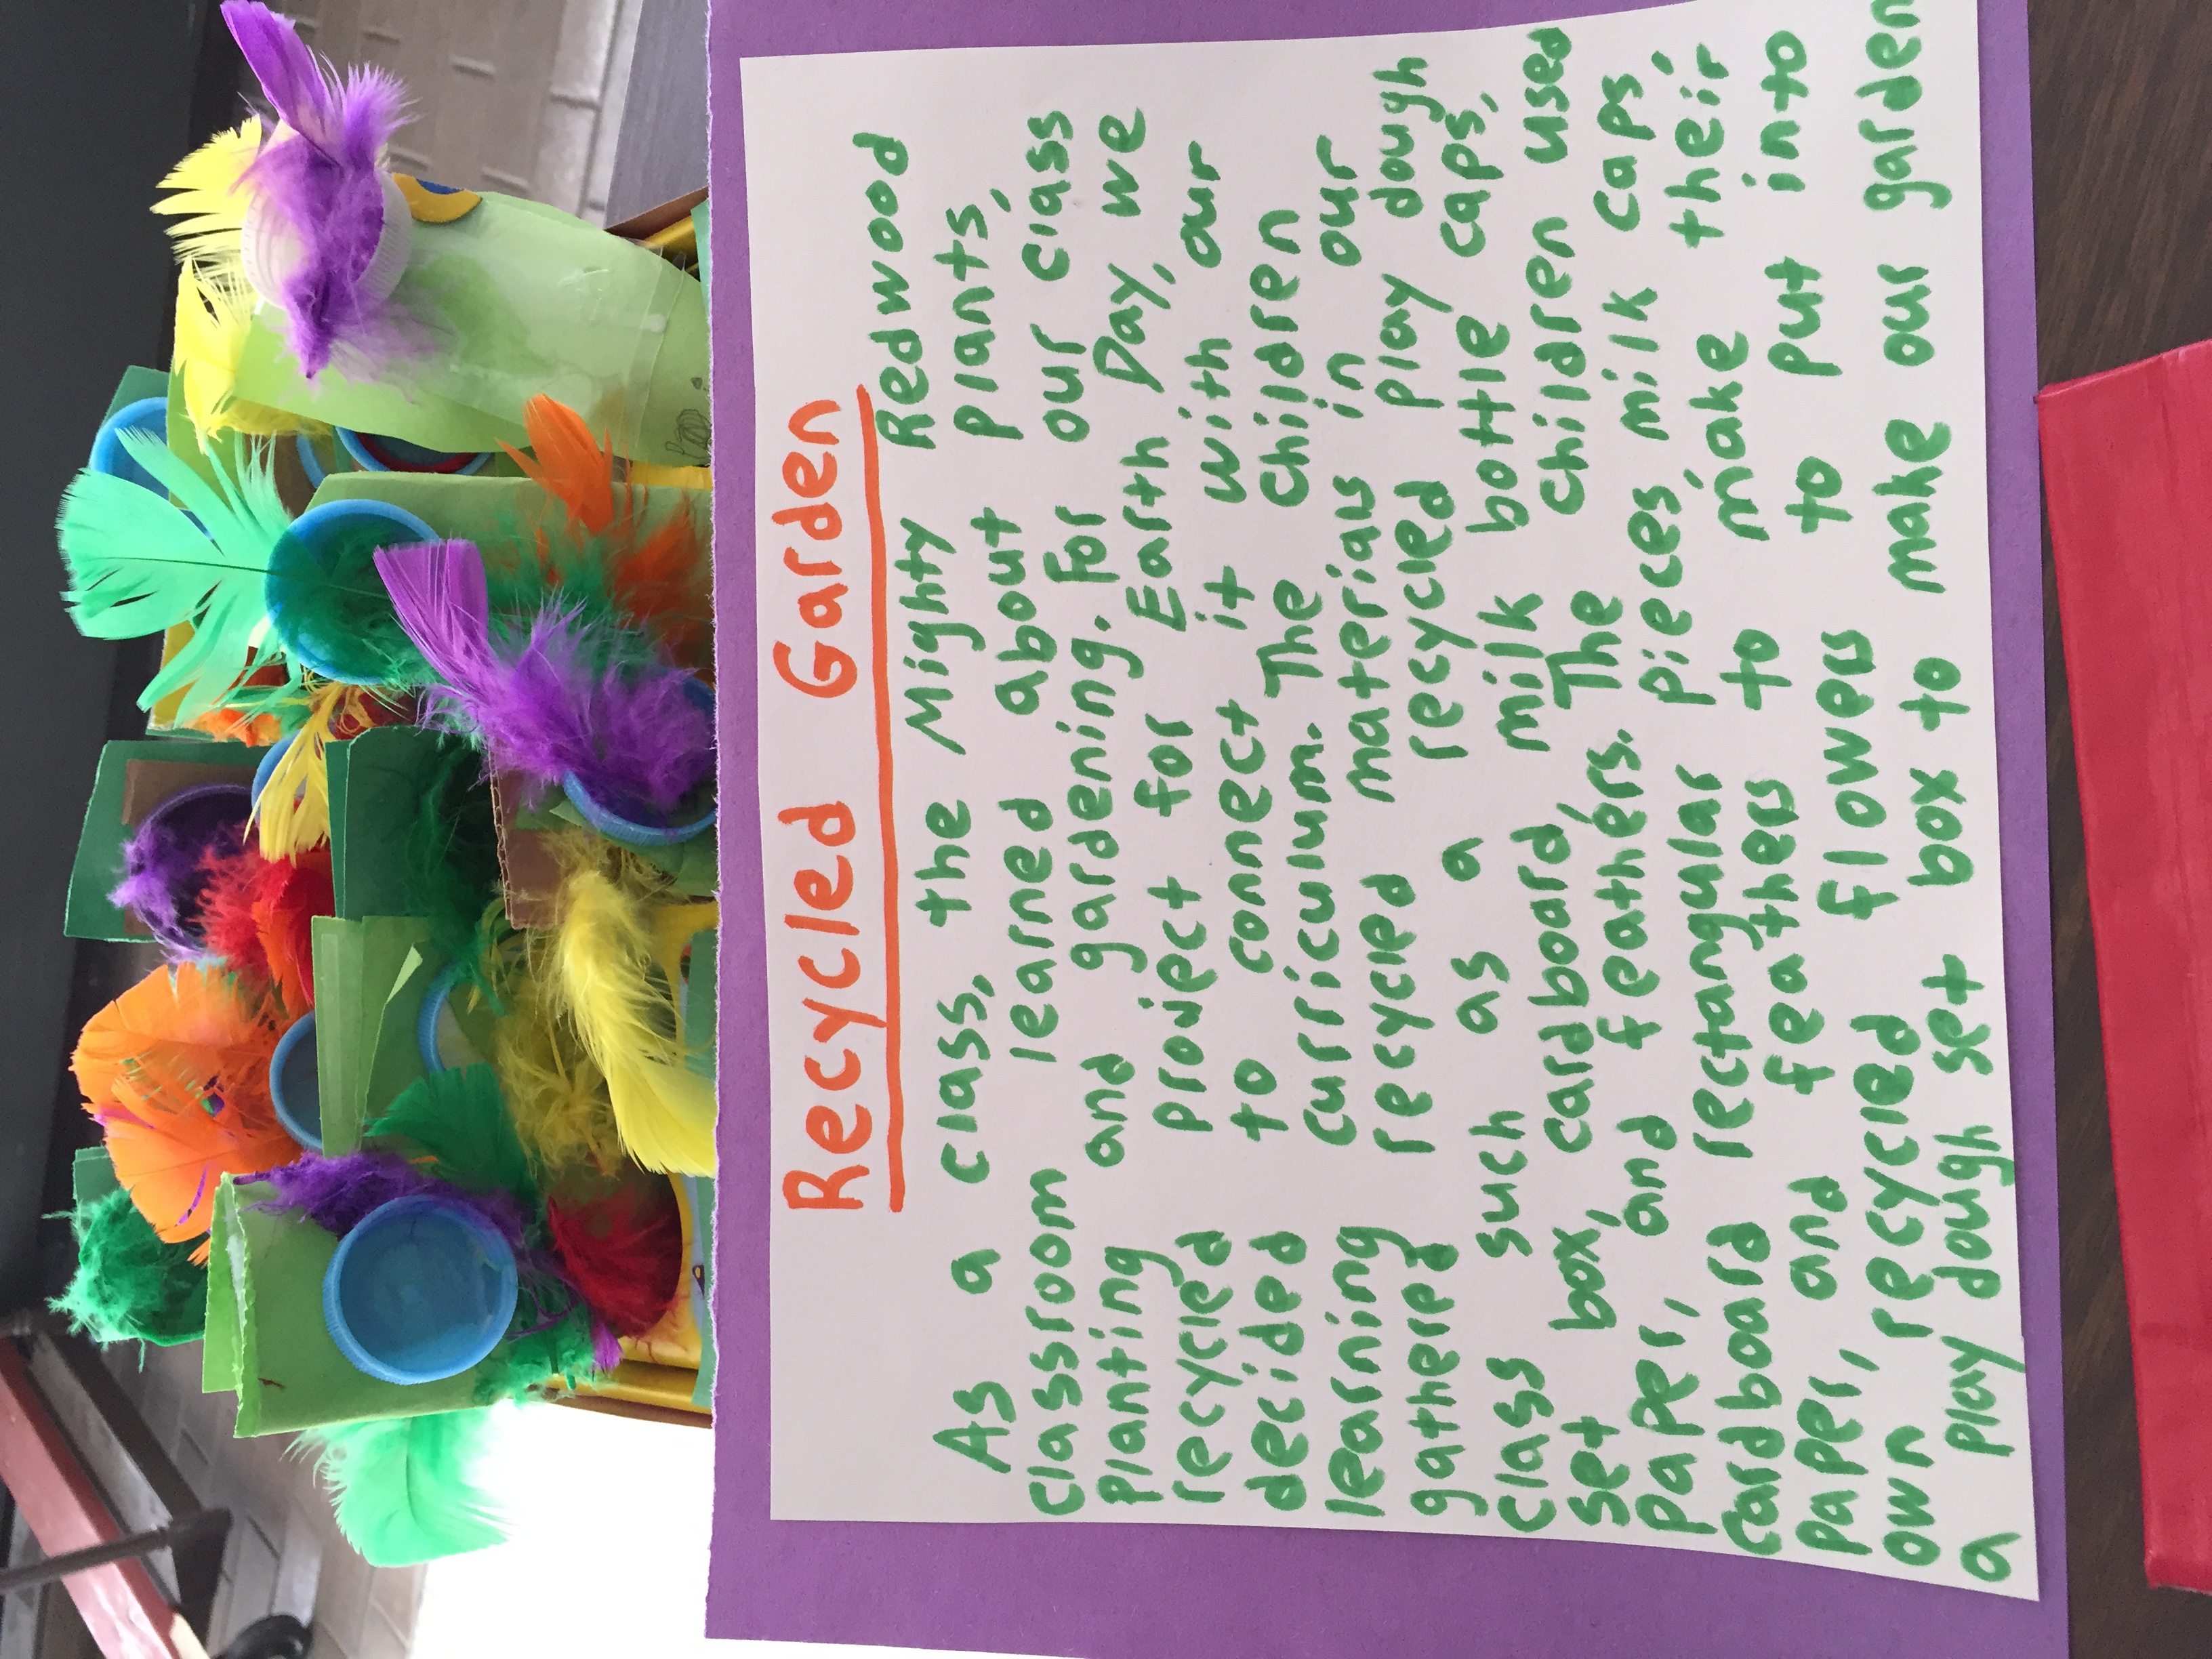 Recycled Garden
As a class, the Mighty Redwood
classroom learned about plants,
planting and gardening. For our class
recycled project for Earth Day, we
decided to connect it with our
learning curriculum. The children
gathered recycled materials in our
class such as a recycled play dough
set box, cardboard, milk bottle caps,
paper, and feathers. The children used
cardboard rectangular pieces, milk caps,
paper, and feathers to make their
own recycled flowers to put into
a play dough set box to make our garden